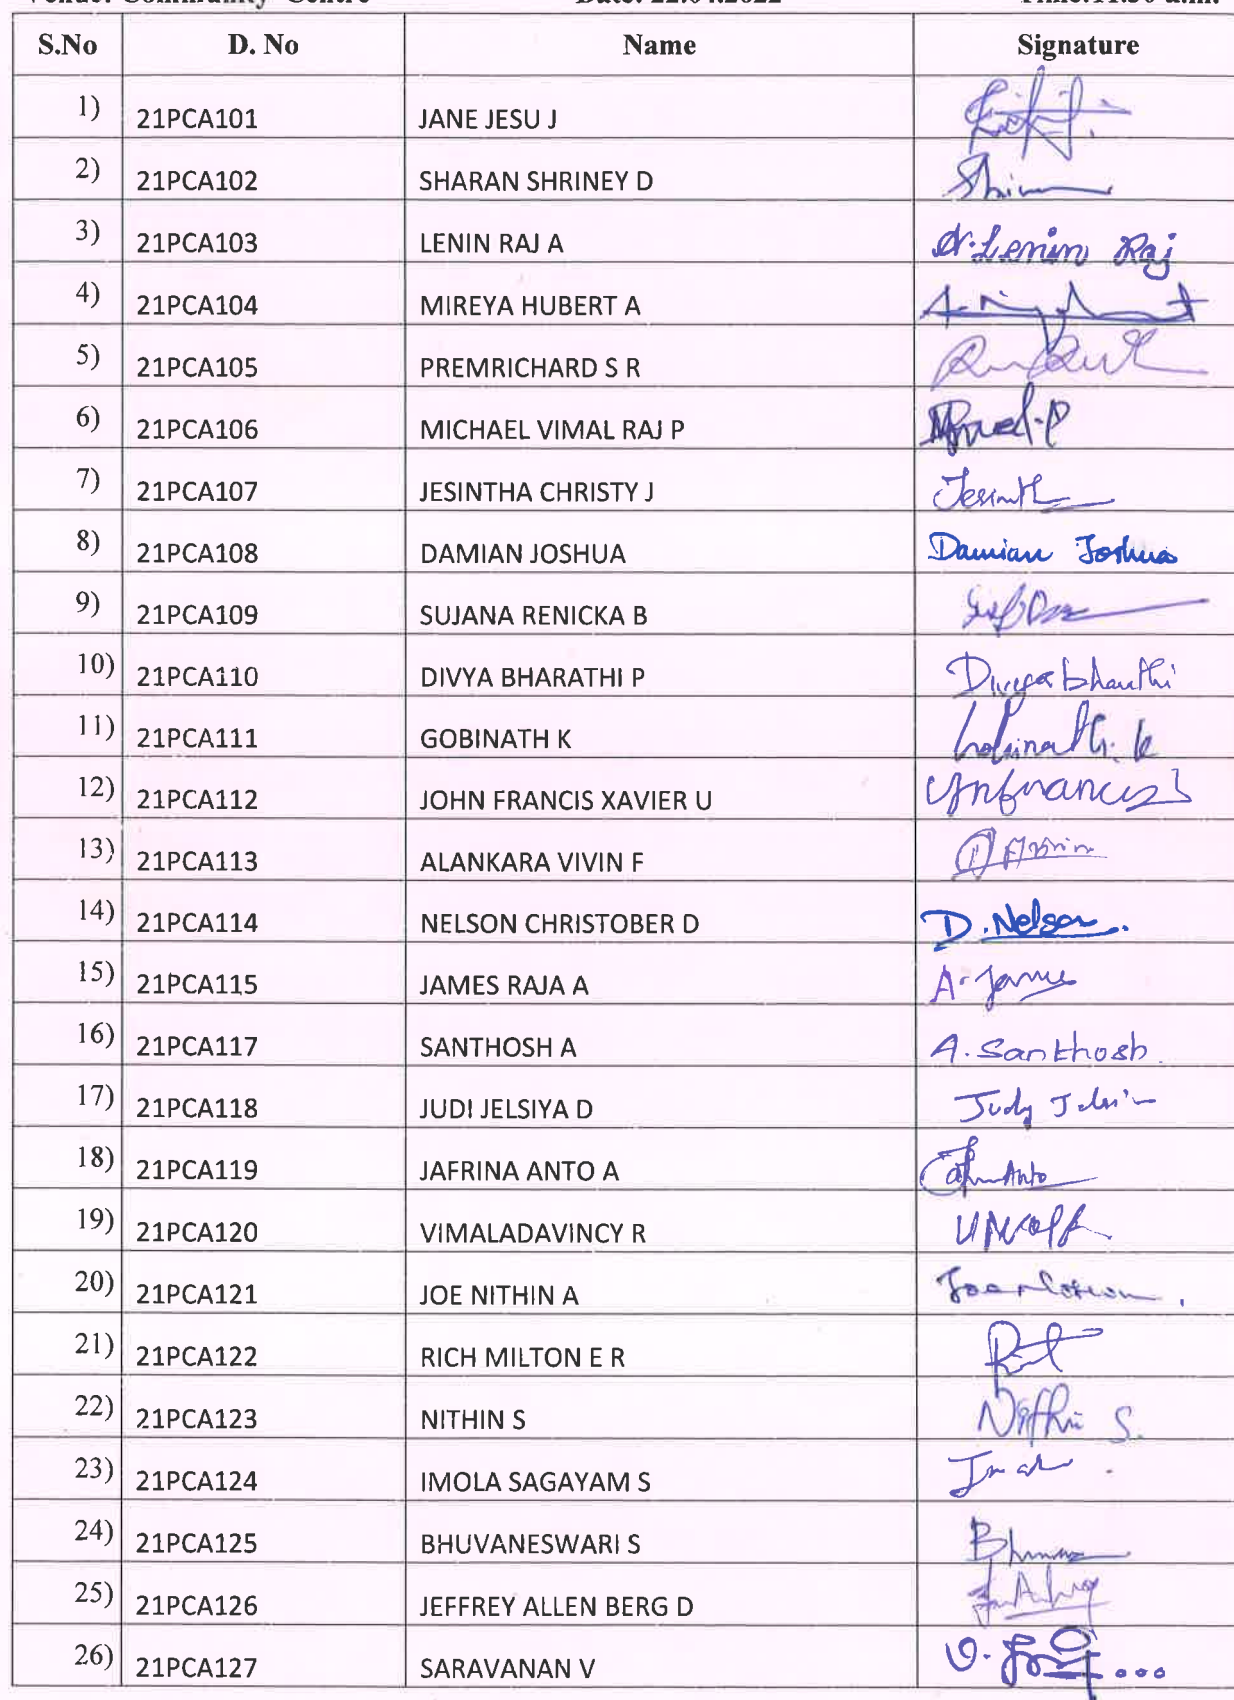 Venue: Community Centre Date: 22.04.2022 Time:11.30 a.m.
S.No D. No Name Signature
1) 21PCA101 JANE JESU J
2) 21PCA102 SHARAN SHRINEY D
3) 21PCA103 LENIN RAJ A A. Lenin Raj
4) 21PCA104 MIREYA HUBERT A
5) 21PCA105 PREMRICHARD S R
6) 21PCA106 MICHAEL VIMAL RAJ P
7) 21PCA107 JESINTHA CHRISTY J Jesinth
8) 21PCA108 DAMIAN JOSHUA Damian Joshua
9) 21PCA109 SUJANA RENICKA B
10) 21PCA110 DIVYA BHARATHI P Divya bharathi
11) 21PCA111 GOBINATH K Gobinath. k
12) 21PCA112 JOHN FRANCIS XAVIER U
13) 21PCA113 ALANKARA VIVIN F
14) 21PCA114 NELSON CHRISTOBER D D. Nelson.
15) 21PCA115 JAMES RAJA A A. James
16) 21PCA117 SANTHOSH A A. Santhosh.
17) 21PCA118 JUDI JELSIYA D Judy
18) 21PCA119 JAFRINA ANTO A Anto
19) 21PCA120 VIMALADAVINCY R
20) 21PCA121 JOE NITHIN A
21) 21PCA122 RICH MILTON E R
22) 21PCA123 NITHIN S Nithin S.
23) 21PCA124 IMOLA SAGAYAM S
24) 21PCA125 BHUVANESWARI S
25) 21PCA126 JEFFREY ALLEN BERG D
26) 21PCA127 SARAVANAN V